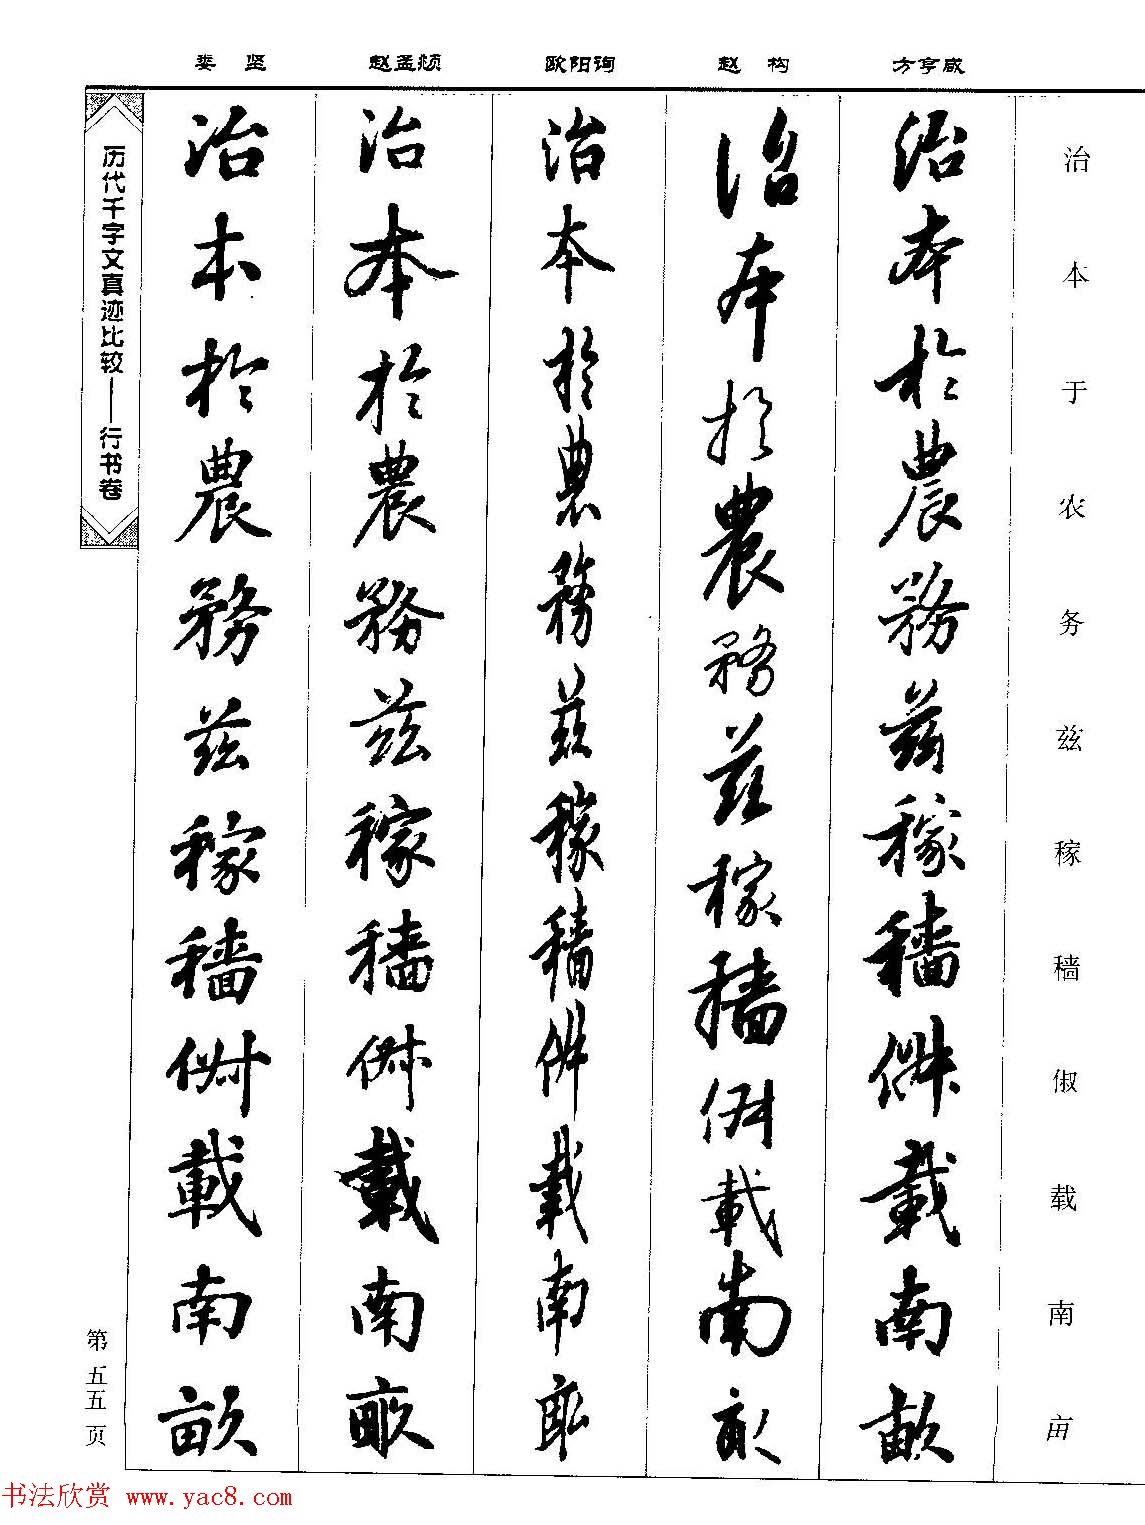 娄坚 赵孟頫 欧阳询 赵构 方亨咸
治本于农务兹稼穑俶载南亩
治本於農務兹稼穡俶載南畝
治本於農務兹稼穡俶載南畝
治本於農務兹稼穡俶載南畝
治本於農務兹稼穡俶載南畝
治本於農務兹稼穡俶載南畝
历代千字文真迹比较——行书卷
第五五页
书法欣赏 www.yac8.com